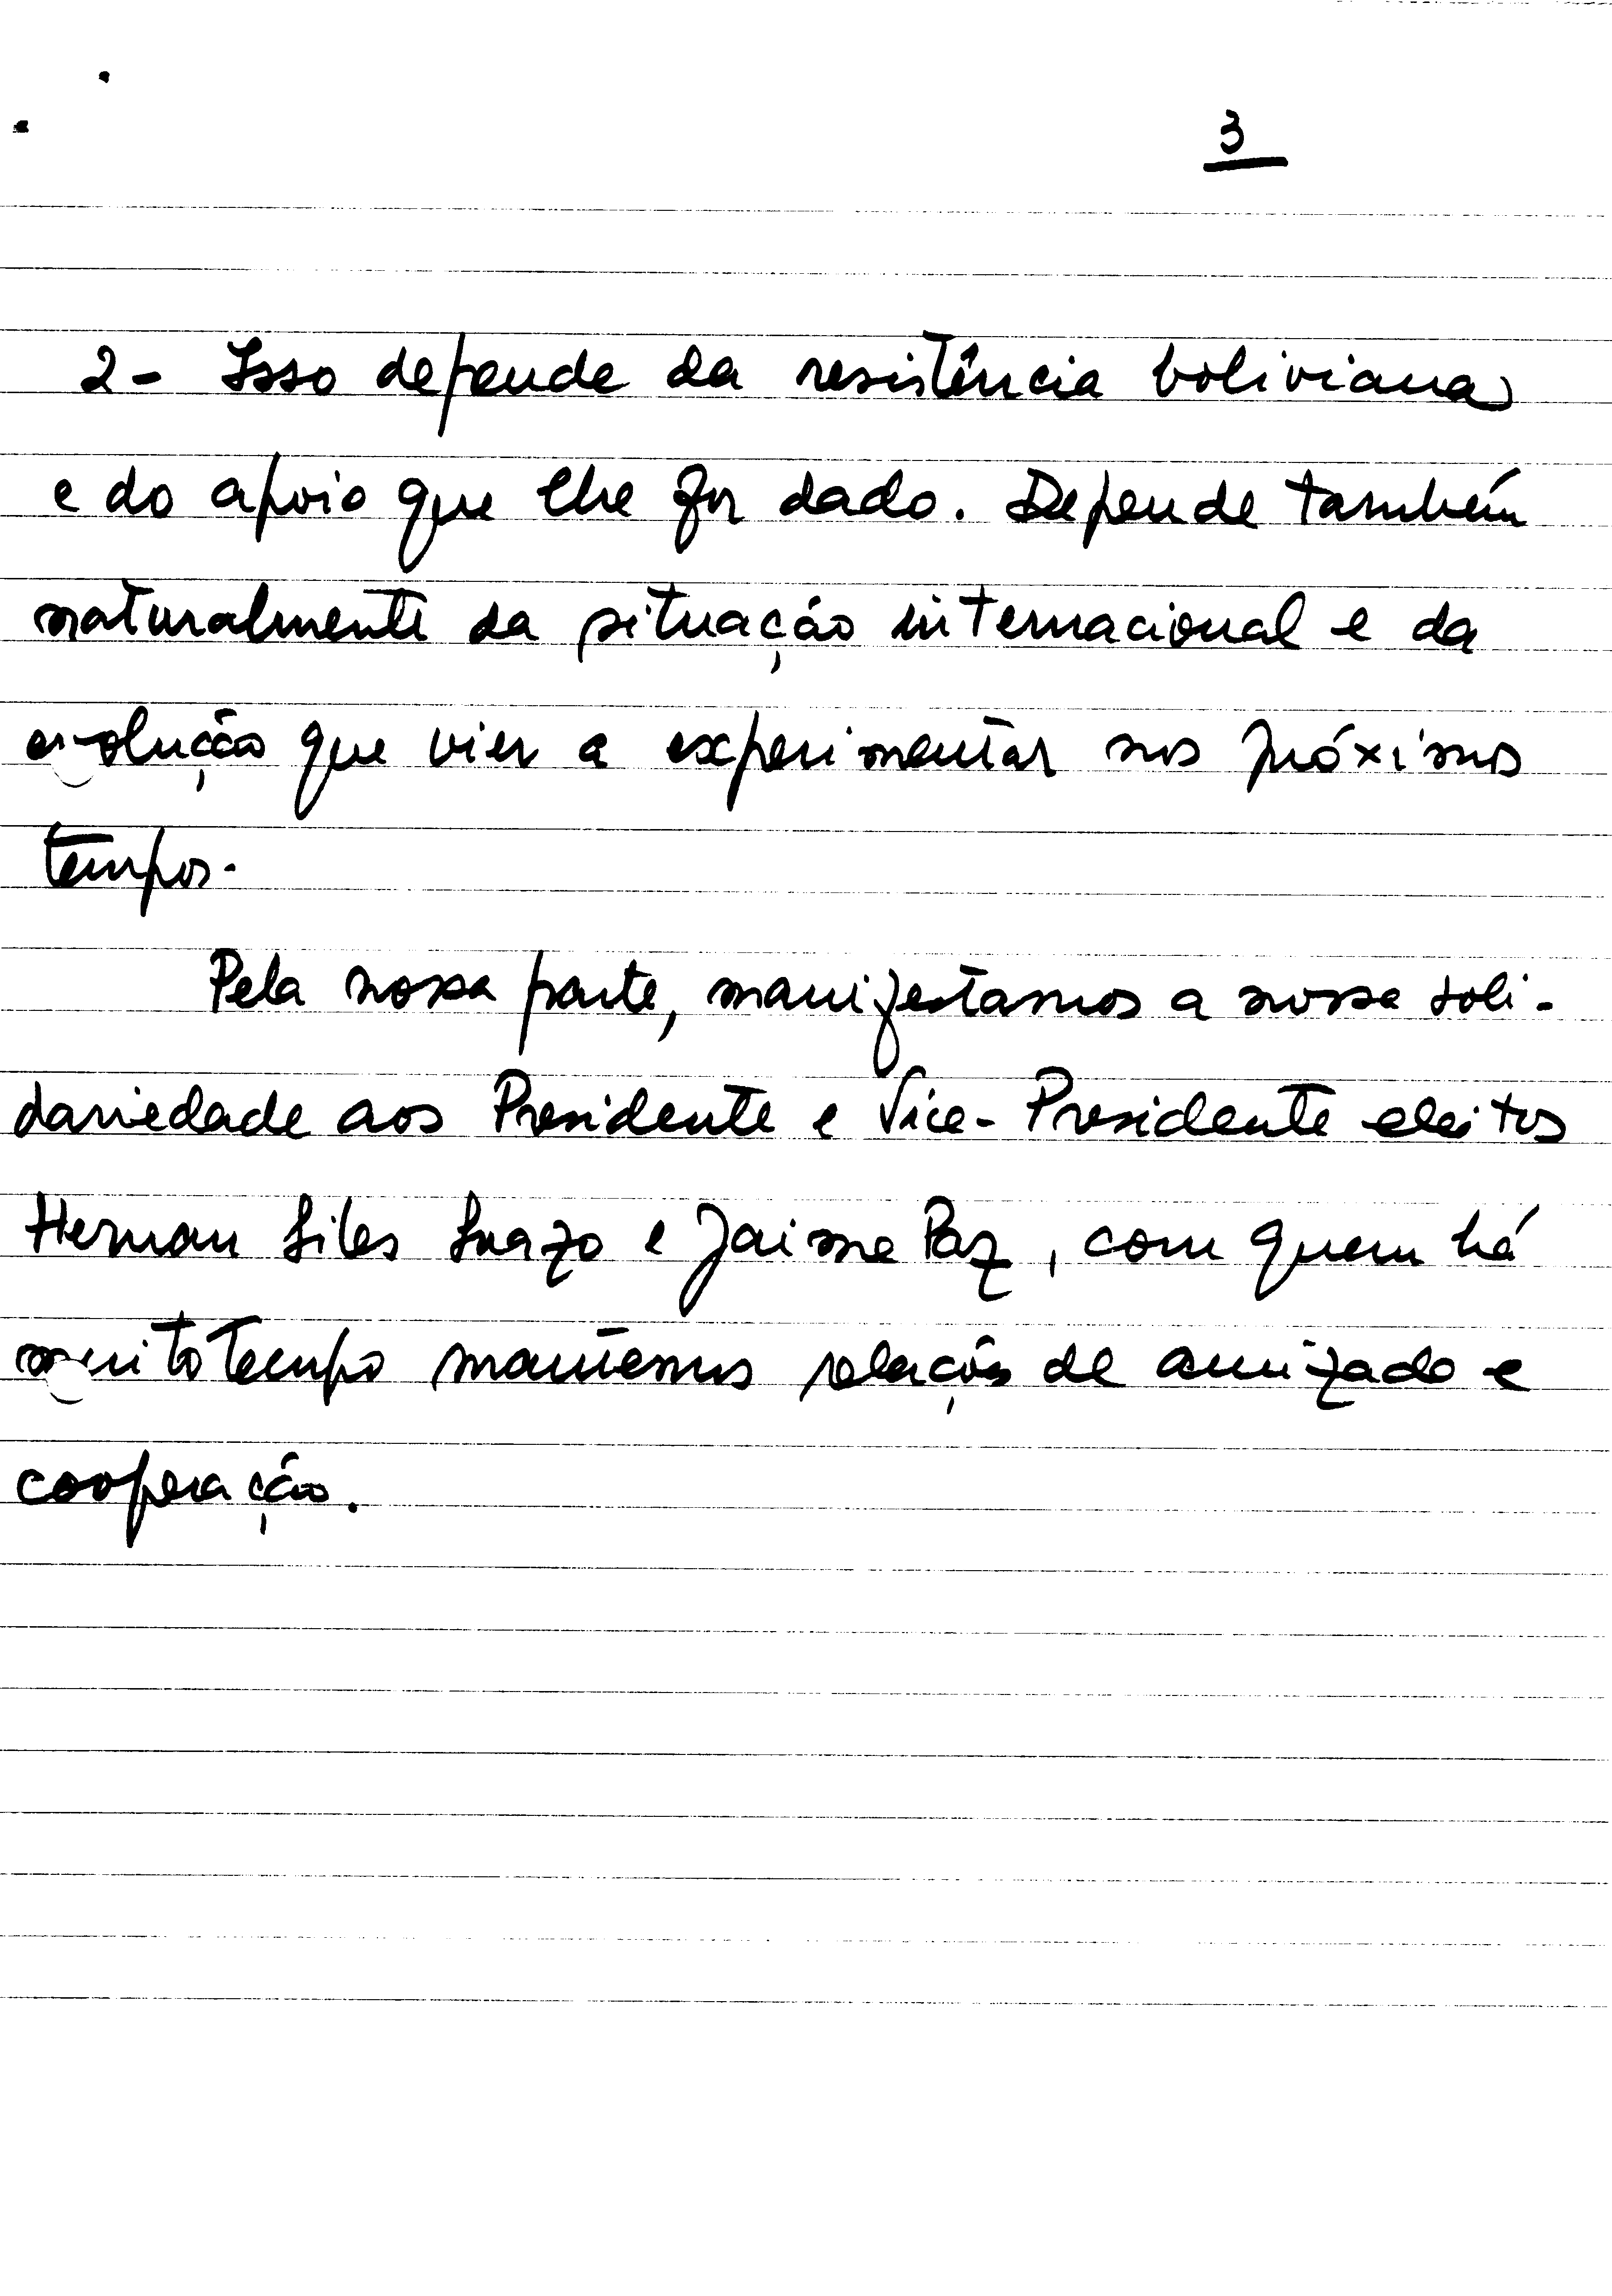 3
2- Isso depende da resistência boliviana
e do apoio que lhe for dado. Depende também
naturalmente da situação internacional e da
evolução que vier a experimentar nos próximos
tempos.
Pela nossa parte, manifestamos a nossa soli-
dariedade aos Presidente e Vice-Presidente eleitos
Hernan Siles Suazo e Jaime Paz, com quem há
muito tempo mantemos relações de amizade e
cooperação.